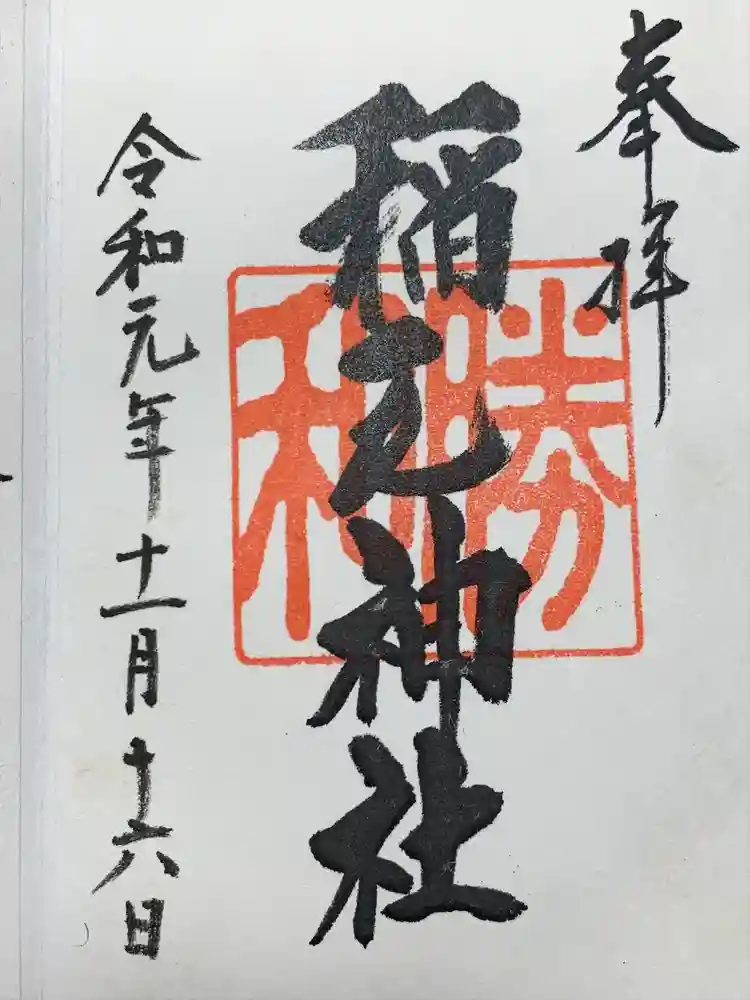 奉拝
稲毛神社
勝利
令和元年十一月十六日